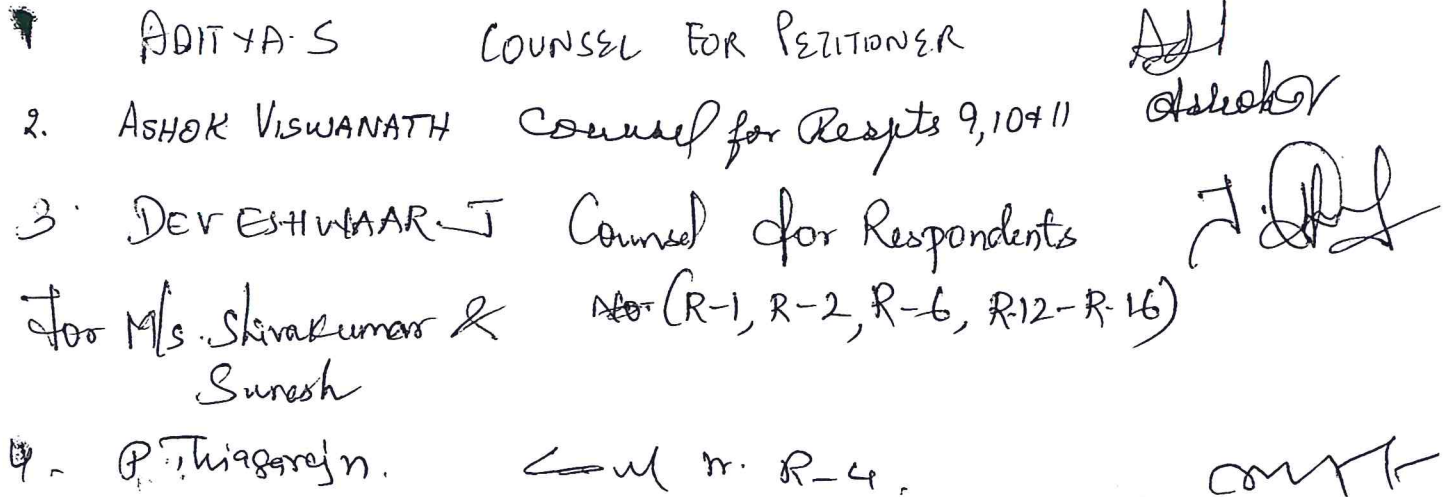 ADITYA.S COUNSEL FOR PETITIONER
2. ASHOK VISWANATH Counsel for Respts 9,10&11 AshokV
3. DEVESHWAAR.J Counsel for Respondents
For M/s. Shivakumar & (R-1, R-2, R-6, R-12-R-16)
Suresh
4. P. Thiagarajn. R-4.